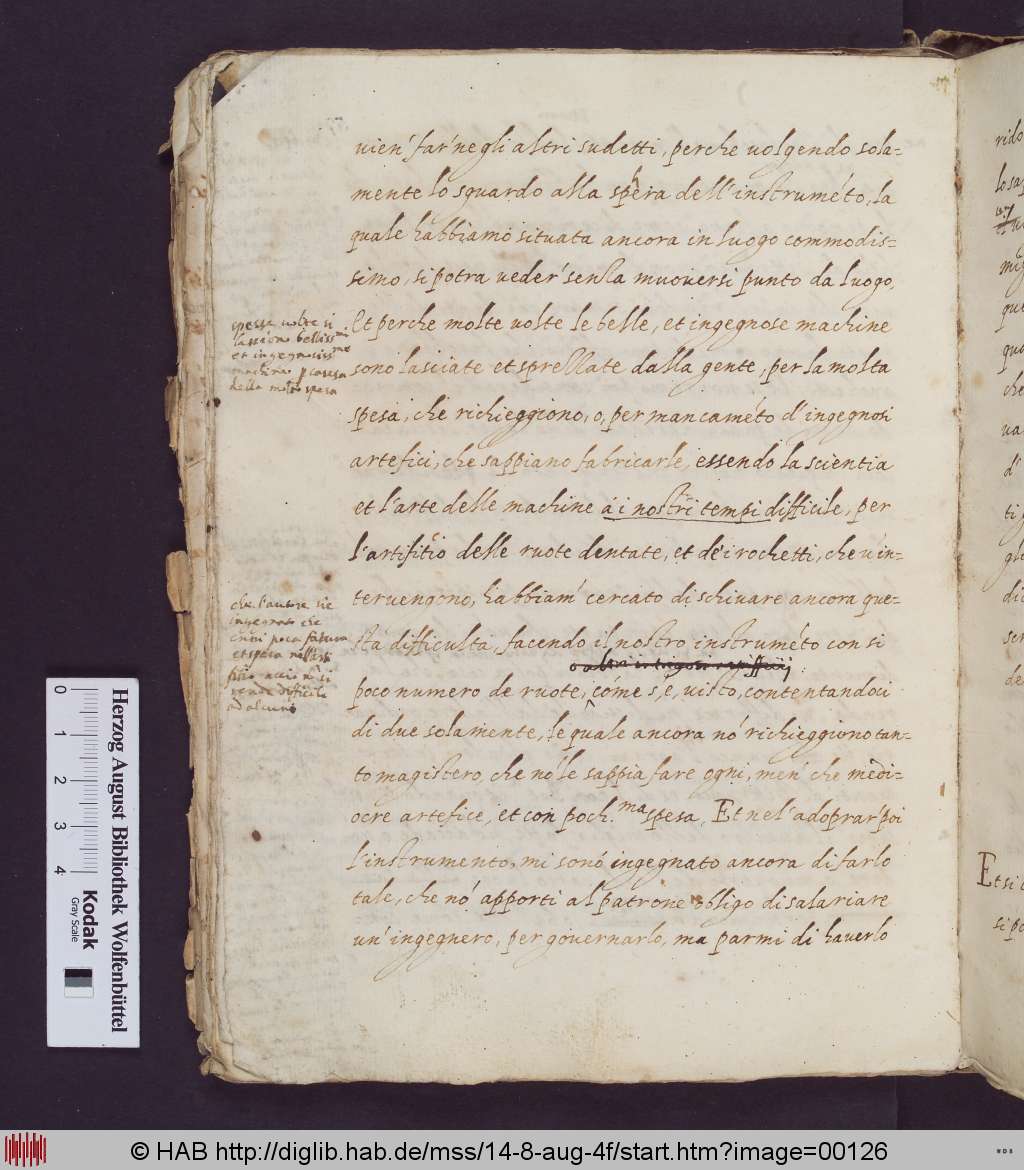 uien' far' negli altri sudetti, perche uolgendo sola=
mente lo sguardo alla sphera dell'instruméto, la
quale habbiamo situata ancora in luogo commodis=
simo, si potra ueder' senza muouersi punto da luogo.
Et perche molte uolte le belle, et ingegnose machine
sono lasciate et sprezzate dalla gente, per la molta
spesa, che richieggiono, o, per mancaméto d'ingegnosi
artefici, che sappiano fabricarle, essendo la scientia
et l'arte delle machine á i nostri tempi difficile, per
l'artifitio delle ruote dentate, et de i rochetti, che u'in=
teruengono, habbiam' cercato di schiuare ancora que=
sta difficulta, facendo il nostro instruméto con si
poco numero de ruote, come s, è, uisto, contentandoci
di due solamente, le quale ancora nó richieggiono tan=
to magistero, che nó le sappia fare ogni, men' che medi=
ocre artefice, et con poch.ma spesa. Et nel'adoprar' poi
l'instrumento, mi sonó ingegnato ancora di farlo
tale, che nó apporti al patrone obligo di salariare
un' ingegnero, per gouernarlo, ma parmi di hauerlo
spesse uolte si
lassiono bellissmi
et ingegnosissme
machine p causa
della molta spesa
che l'autore sie
ingegnato che
poca fattura
et spesa
difficile
ad alcuno
Et si
si po
0 1 2 3 4
Herzog August Bibliothek Wolfenbüttel
Kodak
Gray Scale
© HAB http://diglib.hab.de/mss/14-8-aug-4f/start.htm?image=00126